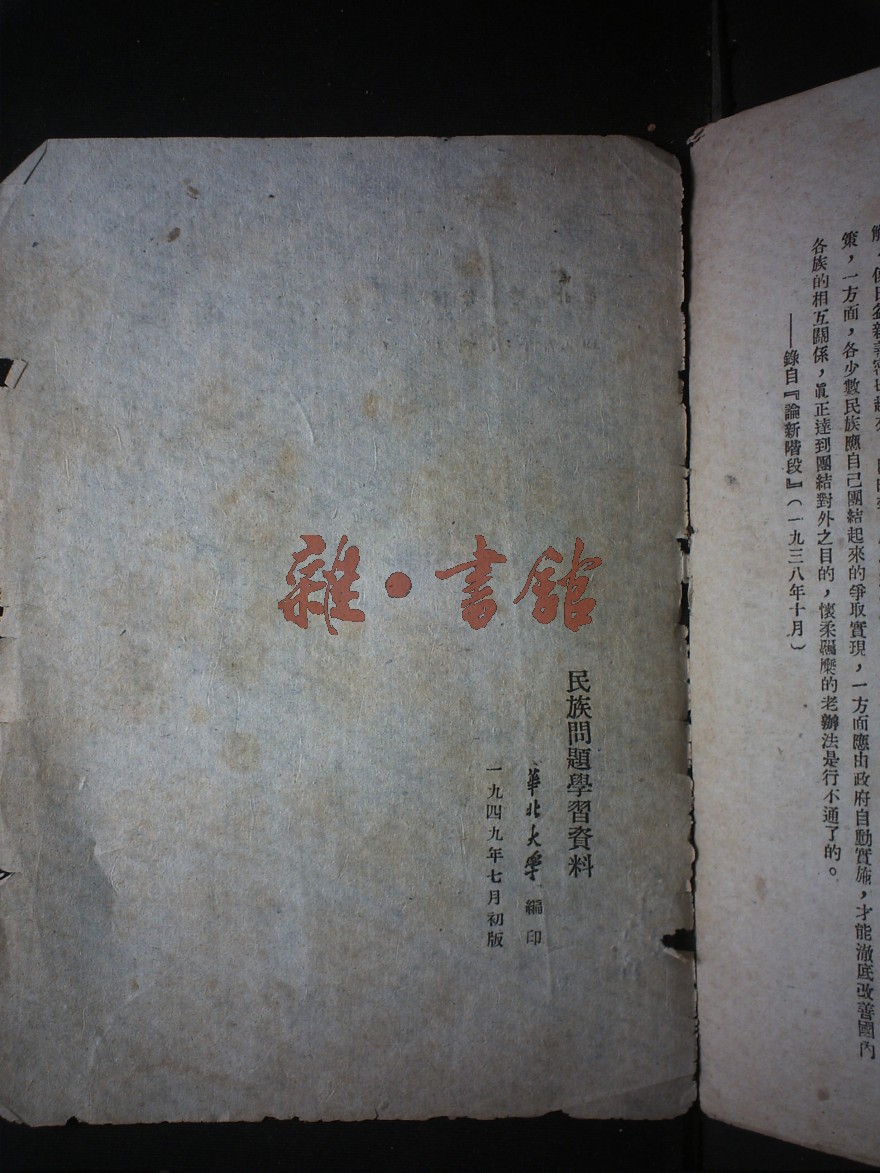 策，一方面，各少數民族應自己團結起來的爭取實現，一方面應由政府自動實施，才能澈底改善國內
各族的相互關係，眞正達到團結對外之目的，懷柔羈縻的老辦法是行不通了的。
——錄自『論新階段』（一九三八年十月）
民族問題學習資料
華北大學 編印
一九四九年七月初版
雜·書館